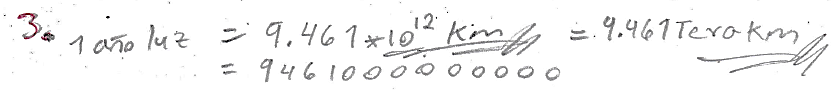 3. 1 año luz = 9.461*10¹² Km = 9.461 Tera Km
= 9461000000000